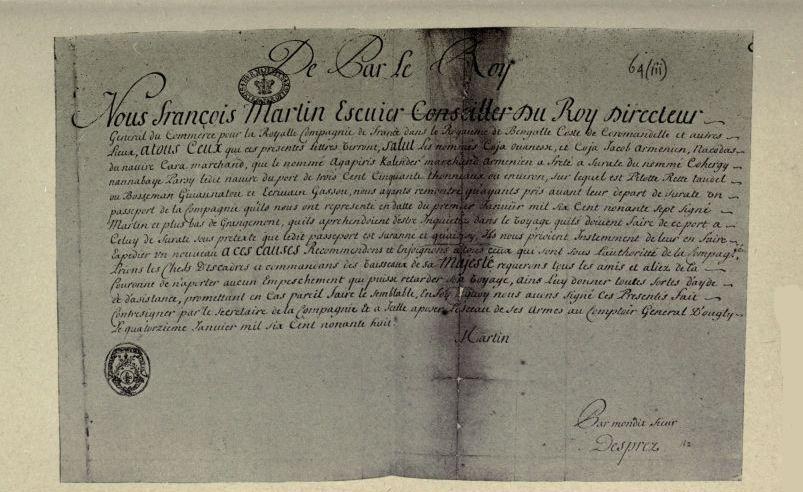 De Par Le Roy
64(iii)
Nous François Martin Escuier Conseiller Du Roy Directeur
General du Commerce pour la Royalle Compagnie de France dans le Royaume de Bengalle Coste de Coromandelle et autres
Lieux, atous Ceux qui ces presentes lettres verront, salut Les nommés Coja ouanesse, et Coja Jacob Armenien, Nacodas
du navire Cara marchand, que le nommé Agapiris Kalender marchand Armenien a freté a Surate du nommé Cohergy
nannabaye Parsy ledit navire du port de trois Cent Cinquante thonneaux ou environ, sur lequel est Pilotte Rette tandel
ou Bosseman Guannatou et Ecrivain Gassou, nous ayants remontré quayants pris avant leur depart de Surate un
passeport de la Compagnie qu'ils nous ont representé en datte du premier Janvier mil six Cent nonante sept signé
Martin et plus bas de Grangemont, quils aprehendoient destre Inquietez dans le voyage quils doivent faire de ce port a
Celuy de Surate sous pretexte que ledit passeport est suranné et Ils nous prioient Instemment de leur en faire
Expedier un nouveau a ces causes Recommendons et Enjoignons atous ceux qui sont sous l'authorité de la Compag.e
Prions les Chefs D'escadres et commandans des vaisseaux de sa Majesté requerons tous les amis et aliez de la
Couronne de n'aporter aucun Empeschement qui puisse retarder son voyage, ains Luy donner toutes sortes dayde
et dasistance, promettant en Cas pareil faire le semblable, En foy de quoy nous avons signé Ces Presentes fait
Contresigner par le Secretaire de la Compagnie et a Icelle aposer le sceau de ses Armes au Comptoir General D'ougly
Le quatorzieme Janvier mil six Cent nonante huit
Martin
Par mondit sieur
Desprez